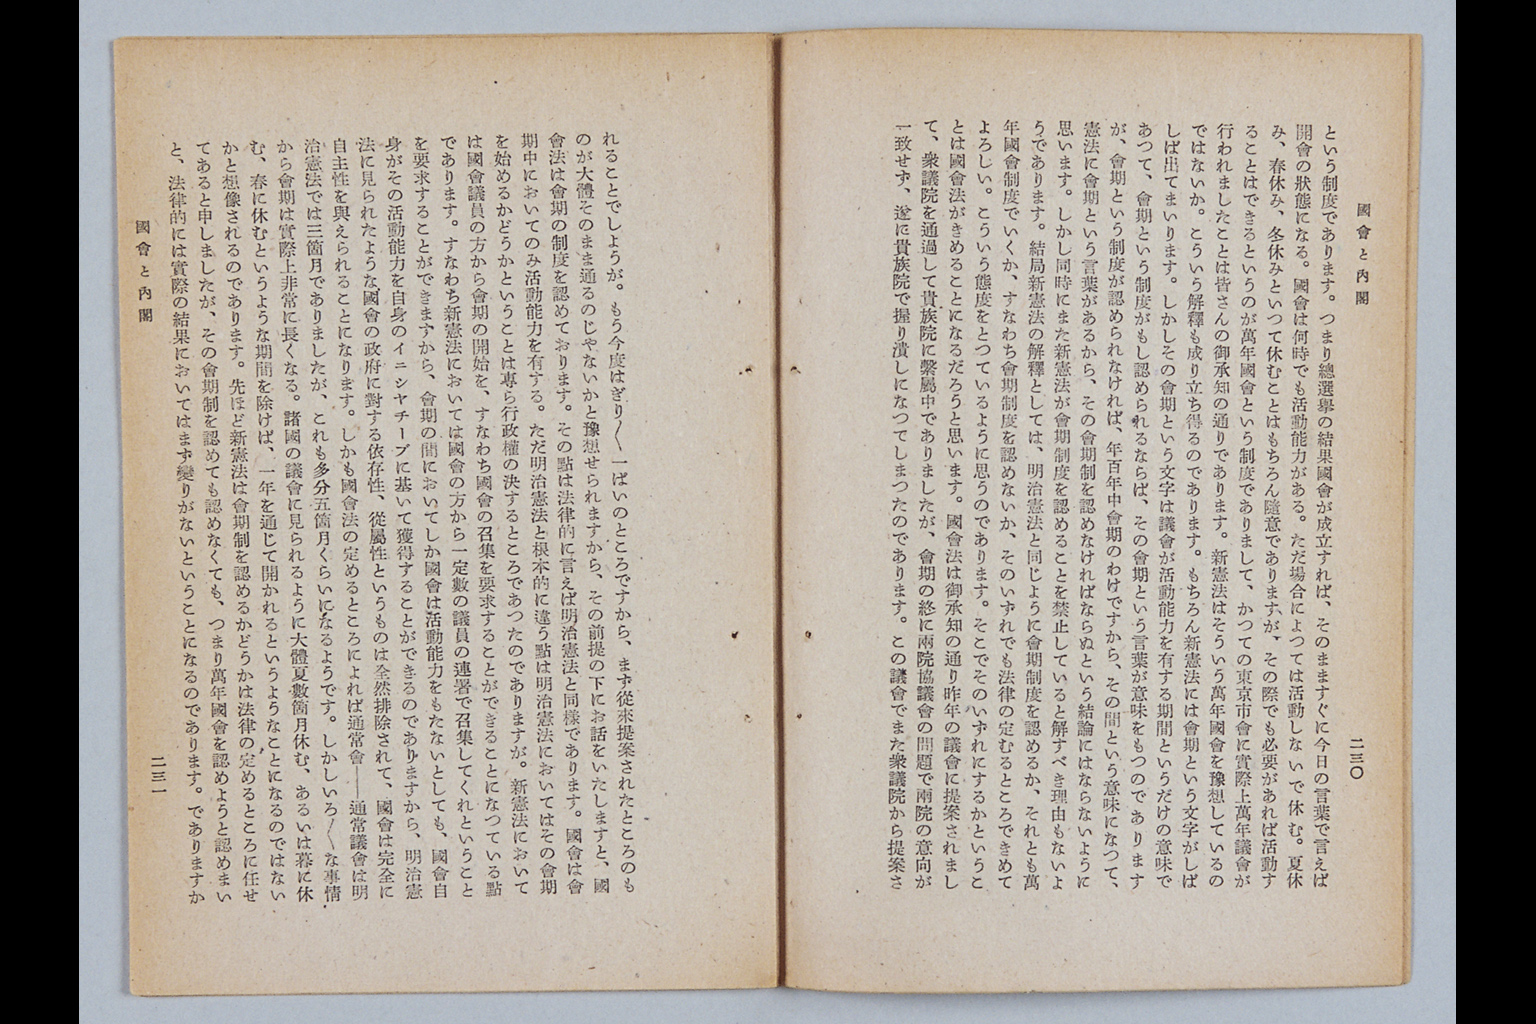 國會と內閣
二三〇
という制度であります。つまり總選擧の結果國會が成立すれば、そのまますぐに今日の言葉で言えば
開會の狀態になる。國會は何時でも活動能力がある。ただ場合によつては活動しないで休む。夏休
み、春休み、冬休みといつて休むことはもちろん隨意でありますが、その際でも必要があれば活動す
ることはできるというのが萬年國會という制度でありまして、かつての東京市會に實際上萬年議會が
行われましたことは皆さんの御承知の通りであります。新憲法はそういう萬年國會を豫想しているの
ではないか。こういう解釋も成り立ち得るのであります。もちろん新憲法には會期という文字がしば
しば出てまいります。しかしその會期という文字は議會が活動能力を有する期間というだけの意味で
あつて、會期という制度がもし認められるならば、その會期という言葉が意味をもつのであります
が、會期という制度が認められなければ、年百年中會期のわけですから、その間という意味になつて、
憲法に會期という言葉があるから、その會期制を認めなければならぬという結論にはならないように
思います。しかし同時にまた新憲法が會期制度を認めることを禁止していると解すべき理由もないよ
うであります。結局新憲法の解釋としては、明治憲法と同じように會期制度を認めるか、それとも萬
年國會制度でいくか、すなわち會期制度を認めないか、そのいずれでも法律の定むるところできめて
よろしい。こういう態度をとつているように思うのであります。そこでそのいずれにするかというこ
とは國會法がきめることになるだろうと思います。國會法は御承知の通り昨年の議會に提案されまし
て、衆議院を通過して貴族院に繫屬中でありましたが、會期の終に兩院協議會の問題で兩院の意向が
一致せず、遂に貴族院で握り潰しになつてしまつたのであります。この議會でまた衆議院から提案さ
れることでしようが。もう今度はぎり〳〵一ぱいのところですから、まず從來提案されたところのも
のが大體そのまま通るのじやないかと豫想せられますから、その前提の下にお話をいたしますと、國
會法は會期の制度を認めております。その點は法律的に言えば明治憲法と同樣であります。國會は會
期中においてのみ活動能力を有する。ただ明治憲法と根本的に違う點は明治憲法においてはその會期
を始めるかどうかということは專ら行政權の決するところであつたのでありますが。新憲法において
は國會議員の方から會期の開始を、すなわち國會の召集を要求することができることになつている點
であります。すなわち新憲法においては國會の方から一定數の議員の連署で召集してくれということ
を要求することができますから、會期の間においてしか國會は活動能力をもたないとしても、國會自
身がその活動能力を自身のイニシヤチーブに基いて獲得することができるのでありますから、明治憲
法に見られたような國會の政府に對する依存性、從屬性というものは全然排除されて、國會は完全に
自主性を與えられることになります。しかも國會法の定めるところによれば通常會――通常議會は明
治憲法では三箇月でありましたが、これも多分五箇月くらいになるようです。しかしいろ〳〵な事情
から會期は實際上非常に長くなる。諸國の議會に見られるように大體夏數箇月休む、あるいは暮に休
む、春に休むというような期間を除けば、一年を通じて開かれるというようなことになるのではない
かと想像されるのであります。先ほど新憲法は會期制を認めるかどうかは法律の定めるところに任せ
てあると申しましたが、その會期制を認めても認めなくても、つまり萬年國會を認めようと認めまい
と、法律的には實際の結果においてはまず變りがないということになるのであります。でありますか
國會と內閣
二三一